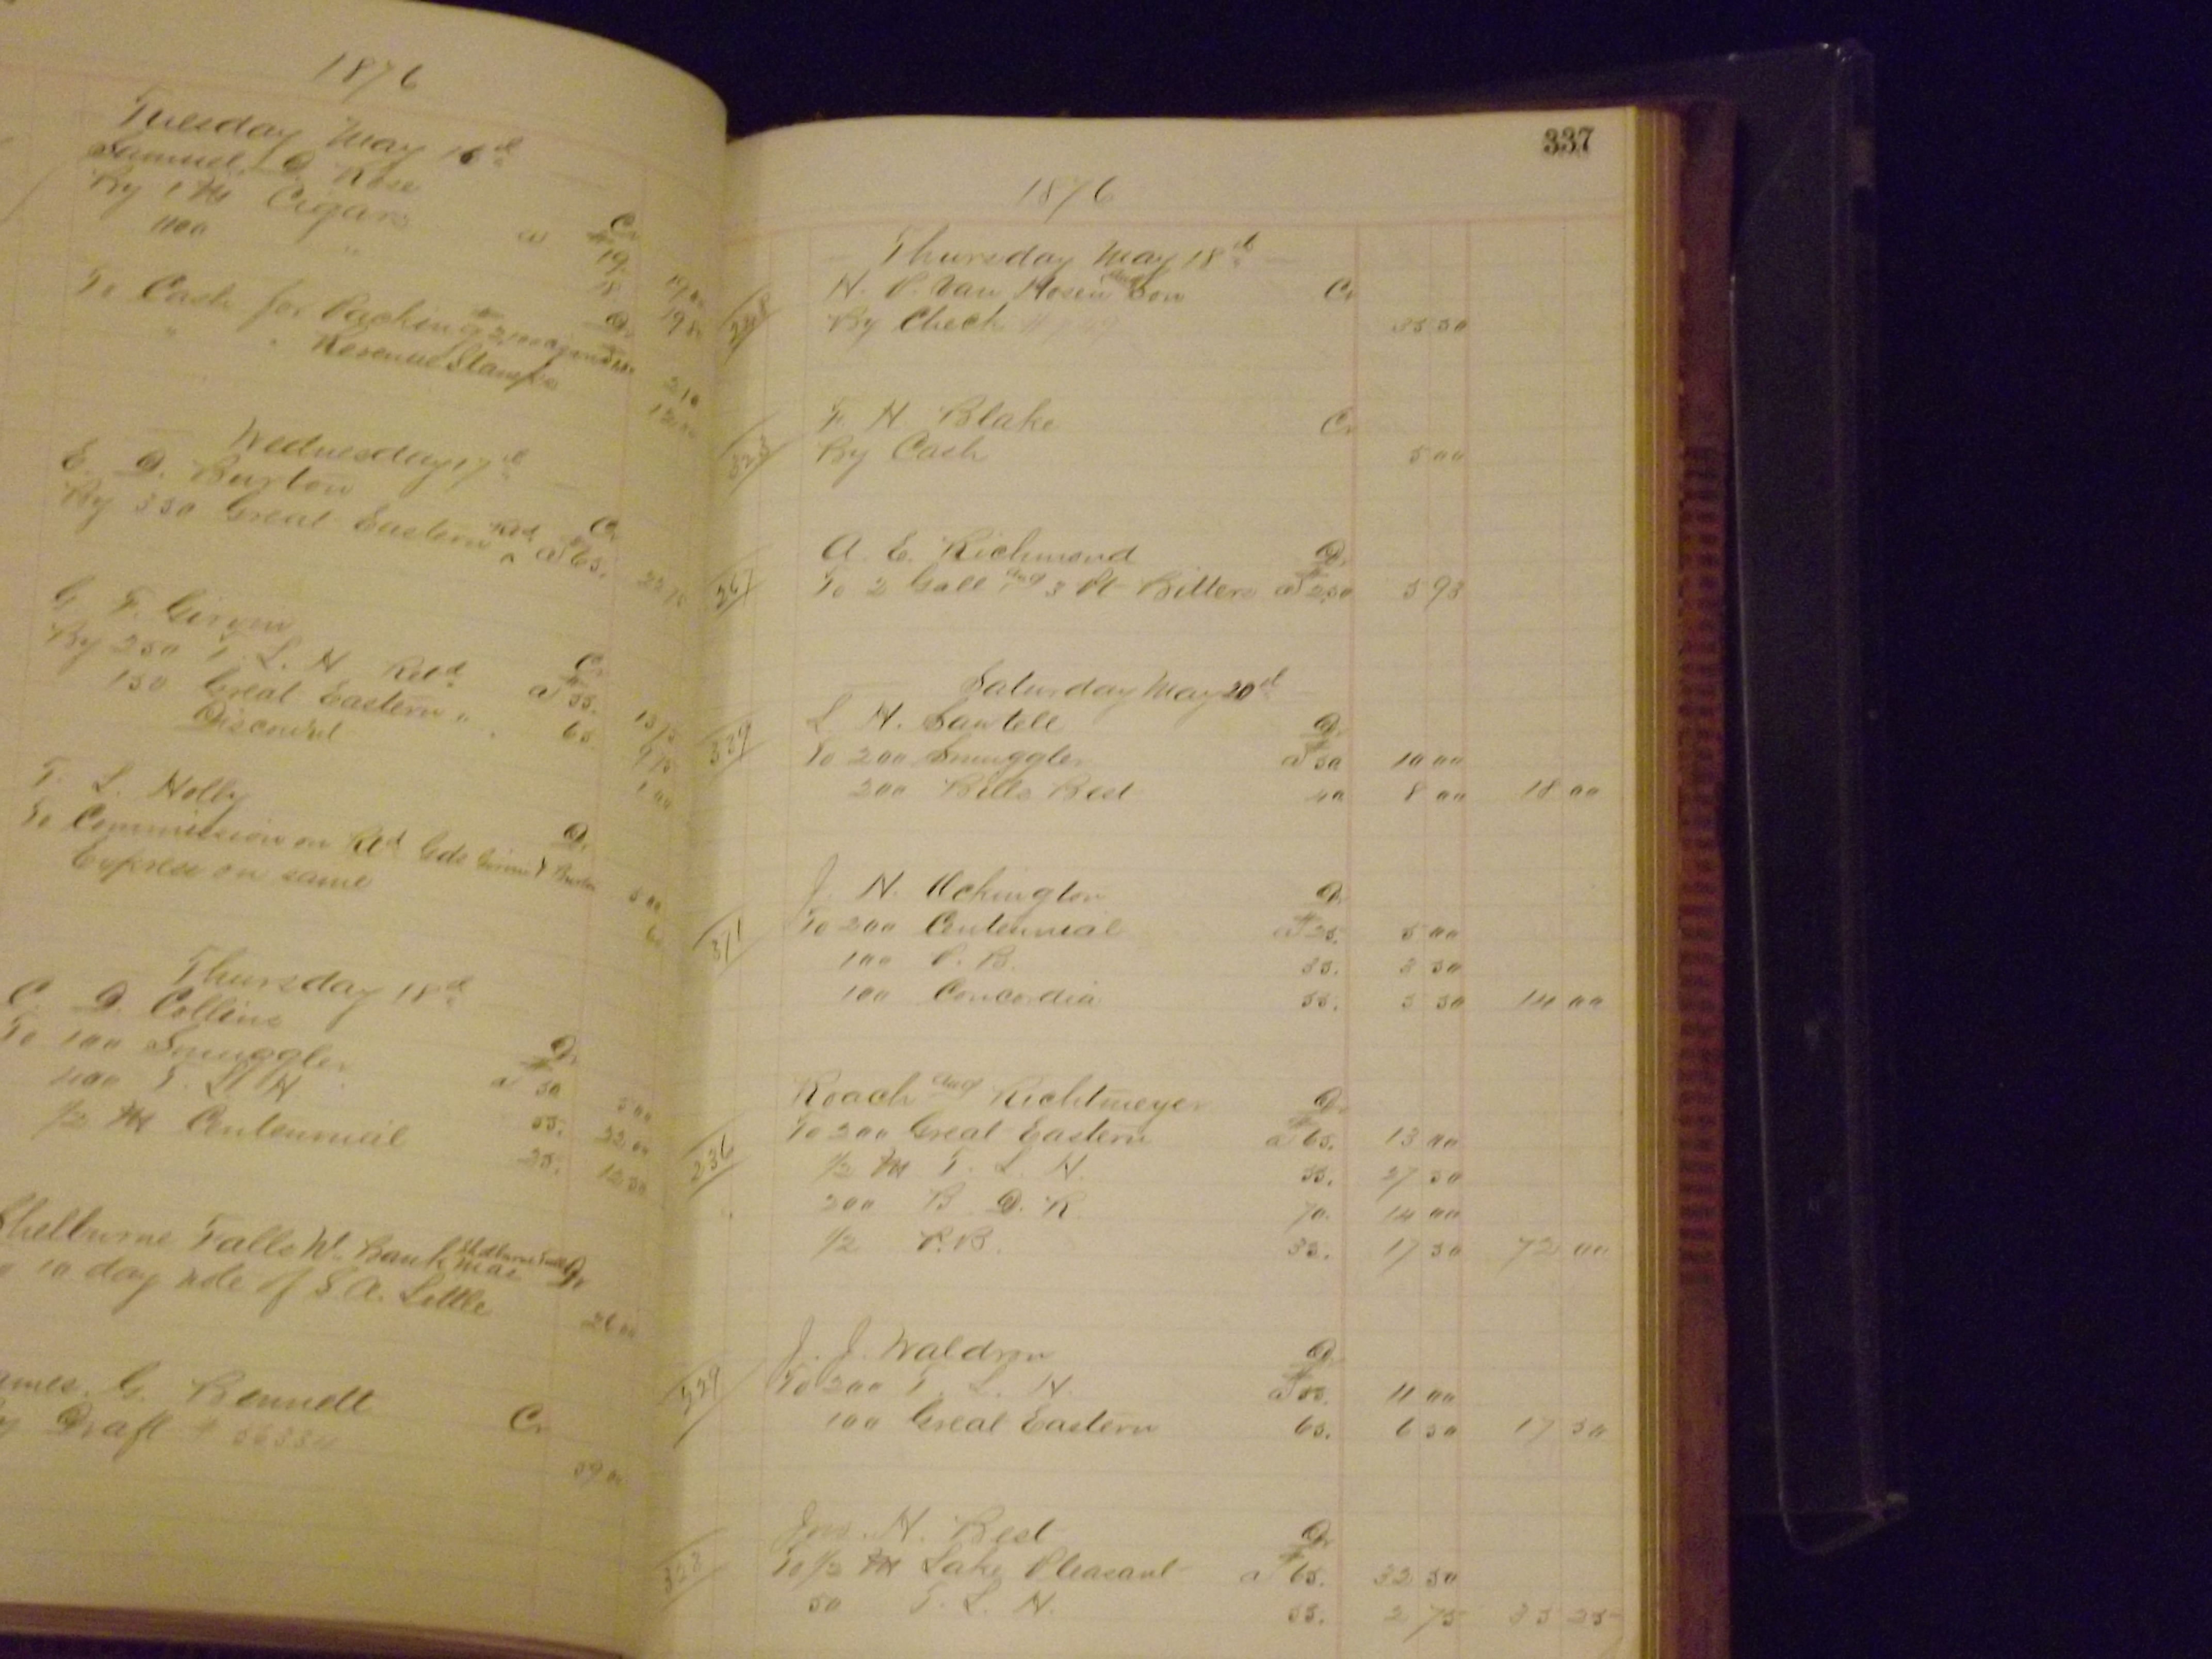 1876
Tuesday May 16d
Samuel D. Rose Cr
By 1 M Cigars a $19. 19 00
1100 " 18 19 80
Dr
To Cash for Packing 2100 Cigars 2 10
" " Revenue Stamps 12
Wednesday 17d
E. D. Burton Cr
By 350 Great Eastern Retd a $65. 22 75
G. F. Cr
By 250 T. L. H Retd a $55. 13 75
150 Great Eastern " 65. 9 75
Discount 1 00
T. L. Holby Dr
To Commission on Retd Gds & Burton 5 00
Express on same 60
Thursday 18d
C. D. Collins Dr
To 100 Smuggler a $50 5 00
400 T. L. H. 55. 22 00
1/2 M Centennial 25. 12 50
Shelburne Falls N. Bank Shelburne Falls Mas Dr
10 day note of S. A. Little 26 00
James G. Bennett Cr
By Draft # 56334 59 00
337
1876
Thursday May 18d
248 H. P. Van Hosen and Son Cr
By Check 35 50
323 F. H Blake Cr
By Cash 5 00
267 A. E. Richmond Dr
To 2 Gall and 3 Pt Bitters a $2.50 5 93
Saturday May 20d
329 L H. Sawtell Dr
To 200 Smuggler a $50 10 00
200 Bills Best 40 8 00 18 00
371 J. N. Dr
To 200 Centennial a $25. 5 00
100 P. B. 35. 3 50
100 Concordia 55. 5 50 14 00
236 Roach and Richtmeyer Dr
To 200 Great Eastern a $65. 13 00
1/2 M T. L. H. 55. 27 50
200 B. D. R. 70. 14 00
1/2 P. B. 35. 17 50 72 00
329 J. J. Waldron Dr
To 200 T. L. H. a $55. 11 00
100 Great Eastern 65. 6 50 17 50
328 Jas. H. Best Dr
To 1/2 M Lake Pleasant a $65. 32 50
50 T. L. H. 55. 2 75 35 25